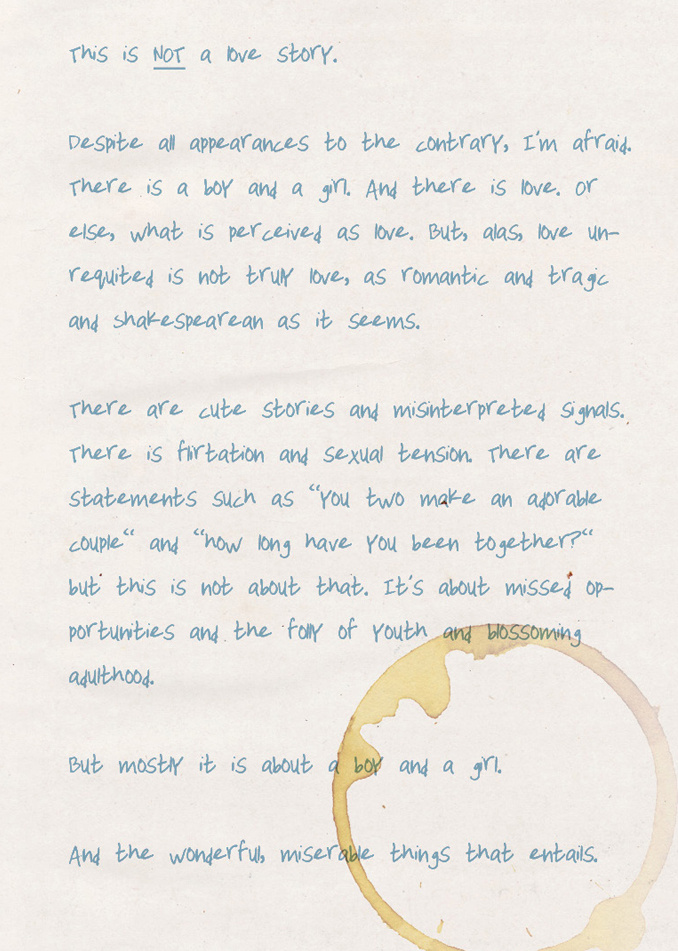 This is NOT a love story.
Despite all appearances to the contrary, I'm afraid.
There is a boy and a girl. And there is love. Or
else, what is perceived as love. But, alas, love un-
requited is not truly love, as romantic and tragic
and shakespearean as it seems.
There are cute stories and misinterpreted signals.
There is flirtation and sexual tension. There are
statements such as “You two make an adorable
couple“ and “how long have you been together?“
but this is not about that. It's about missed op-
portunities and the folly of youth and blossoming
adulthood.
But mostly it is about a boy and a girl.
And the wonderful, miserable things that entails.